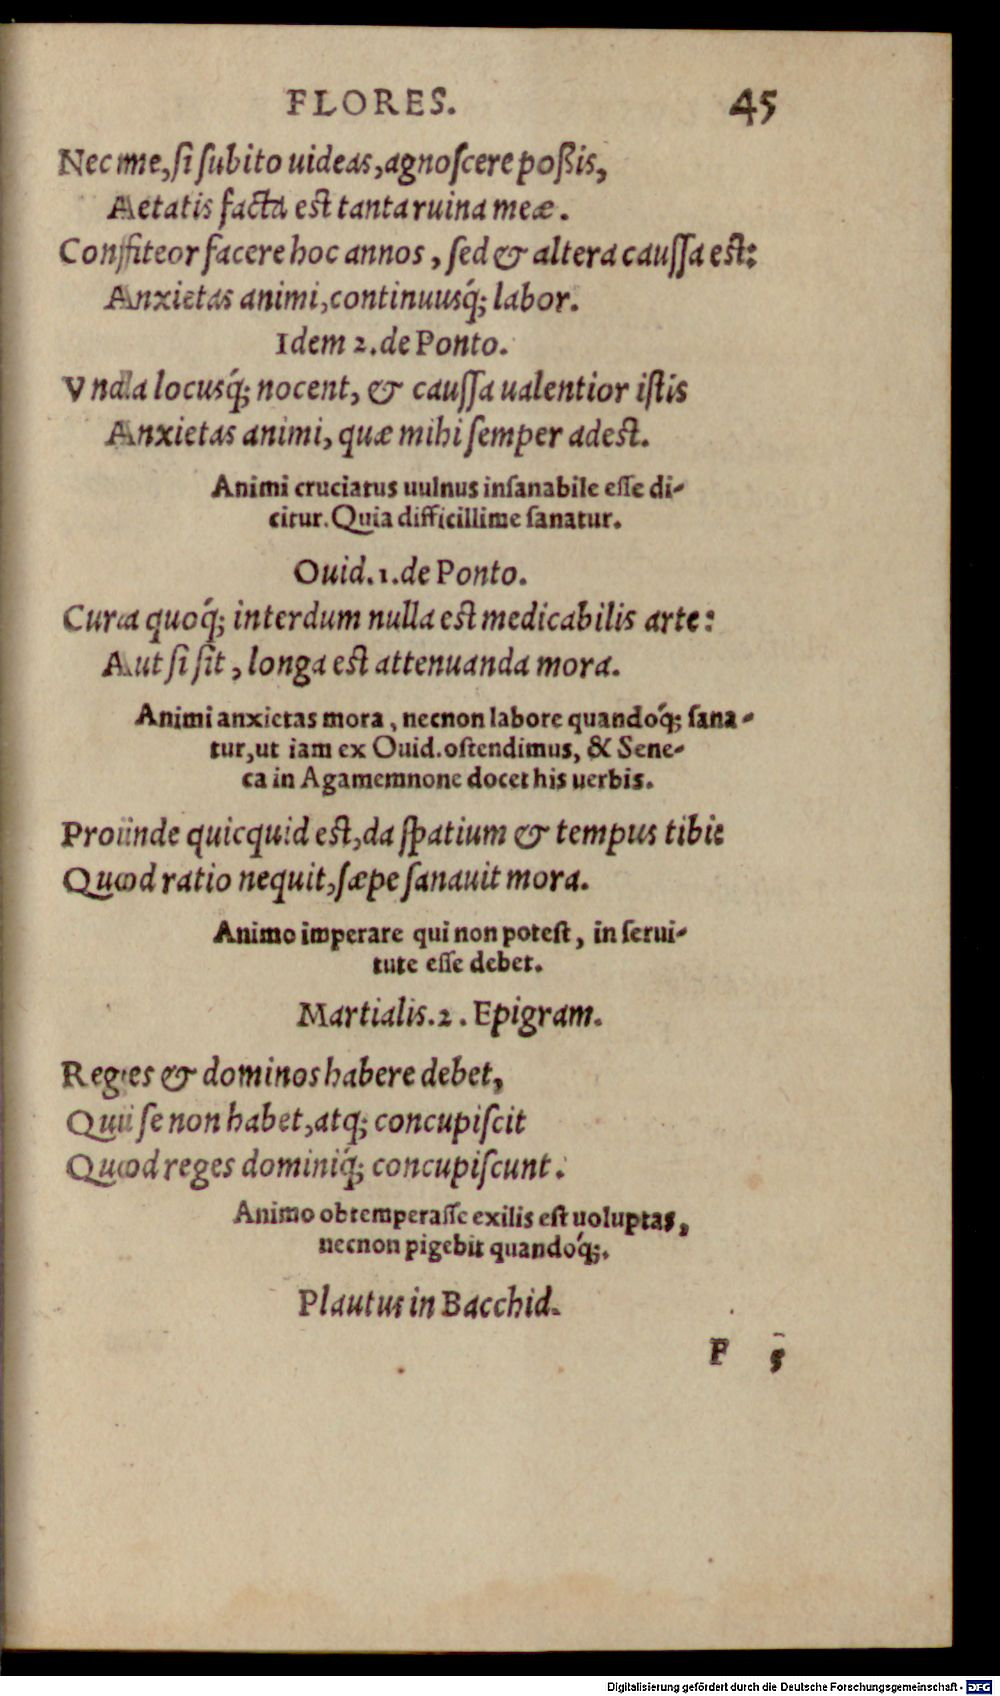 FLORES. 45
Nec me, ſi ſubito uideas, agnoſcere poßis,
Aetatis facta est tanta ruina meæ.
Confiteor facere hoc annos, ſed & altera cauſſa est:
Anxietas animi, continuusq́; labor.
Idem 2. de Ponto.
Vnda locusq́; nocent, & cauſſa ualentior iſtis
Anxietas animi, quæ mihi ſemper adest.
Animi cruciatus uulnus inſanabile eſſe di-
citur. Quia difficillime ſanatur.
Ouid. 1. de Ponto.
Cura quoq́; interdum nulla est medicabilis arte:
Aut ſi ſit, longa est attenuanda mora.
Animi anxietas mora, necnon labore quandoq́; ſana-
tur, ut iam ex Ouid. oſtendimus, & Sene-
ca in Agamemnone docet his uerbis.
Proinde quicquid est, da ſpatium & tempus tibi:
Quod ratio nequit, ſæpe ſanauit mora.
Animo imperare qui non poteſt, in ſerui-
tute eſſe debet.
Martialis. 2. Epigram.
Reges & dominos habere debet,
Qui ſe non habet, atq; concupiſcit
Quod reges dominiq́; concupiſcunt.
Animo obtemperaſſe exilis eſt uoluptas,
necnon pigebit quandoq́;.
Plautus in Bacchid.
F 5
Digitalisierung gefördert durch die Deutsche Forschungsgemeinschaft - DFG